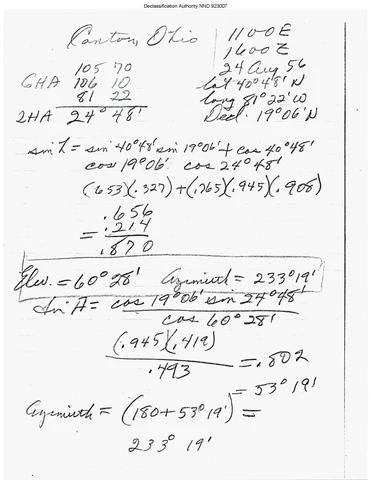 Declassification Authority NND 923007
Canton, Ohio
1100E
1600Z
24 Aug 56
lat 40°48'N
long 81°22'W
Decl. 19°06'N
105 70
GHA 106 10
81 22
LHA 24° 48'
sin h = sin 40°48' sin 19°06' + cos 40°48'
cos 19°06' cos 24°48'
(.653)(.327)+(.765)(.945)(.908)
.656
= .214
.870
Elev. = 60° 28' Azimuth = 233° 19'
sin A = cos 19°06' sin 24°48'
cos 60° 28'
(.945)(.419)
.493
= .802
= 53° 19'
Azimuth = (180 + 53° 19') =
233° 19'